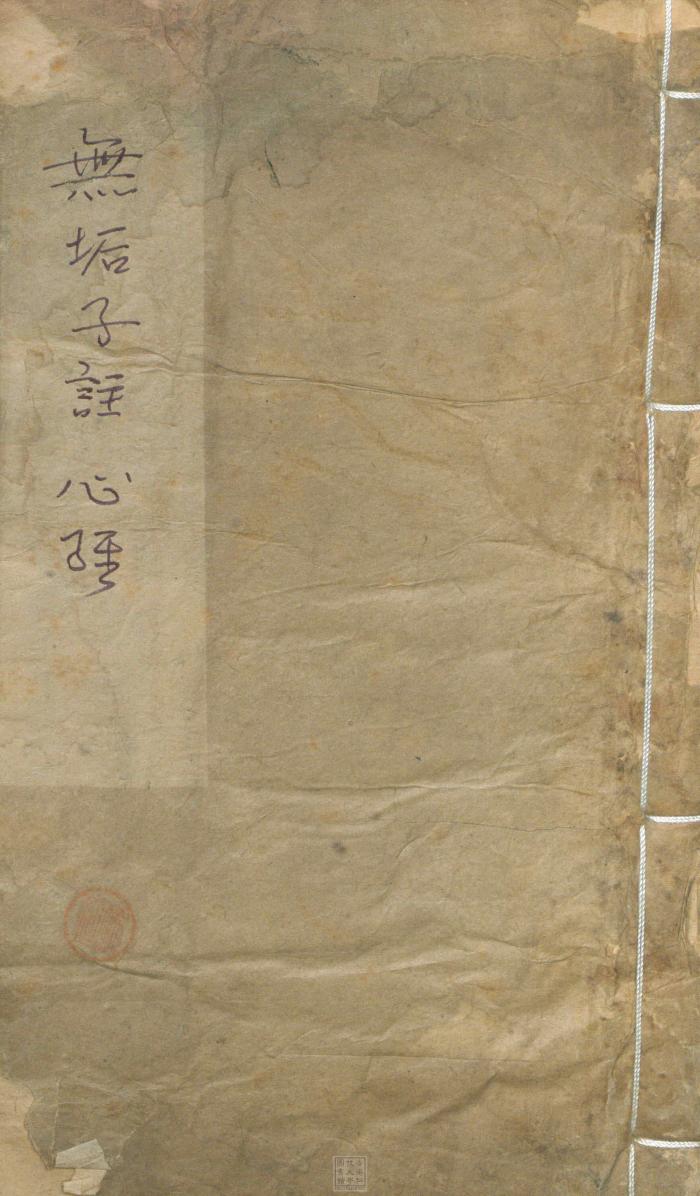 無垢子註 心經